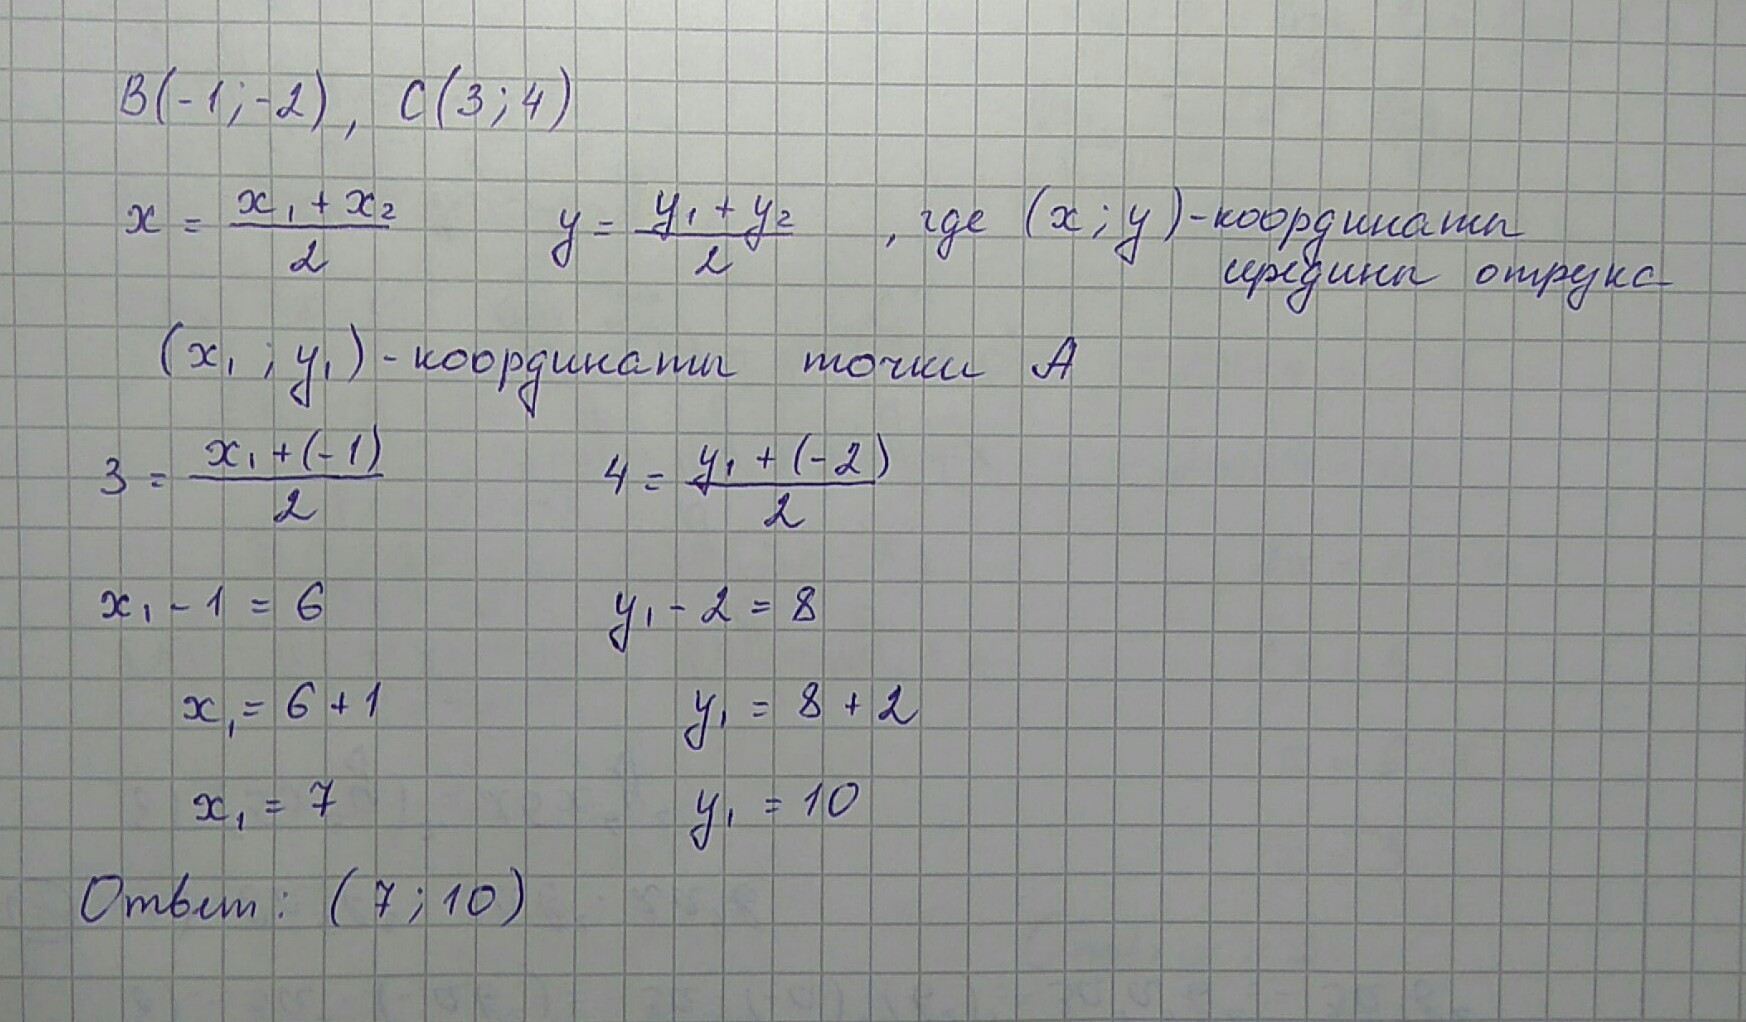 B(-1;-2), C(3;4)
x = (x₁ + x₂)/2    y = (y₁ + y₂)/2 , где (x; y) - координаты
середины отрезка
(x₁ ; y₁) - координаты точки A
3 = (x₁ + (-1))/2    4 = (y₁ + (-2))/2
x₁ - 1 = 6    y₁ - 2 = 8
x₁ = 6 + 1    y₁ = 8 + 2
x₁ = 7    y₁ = 10
Ответ: (7; 10)